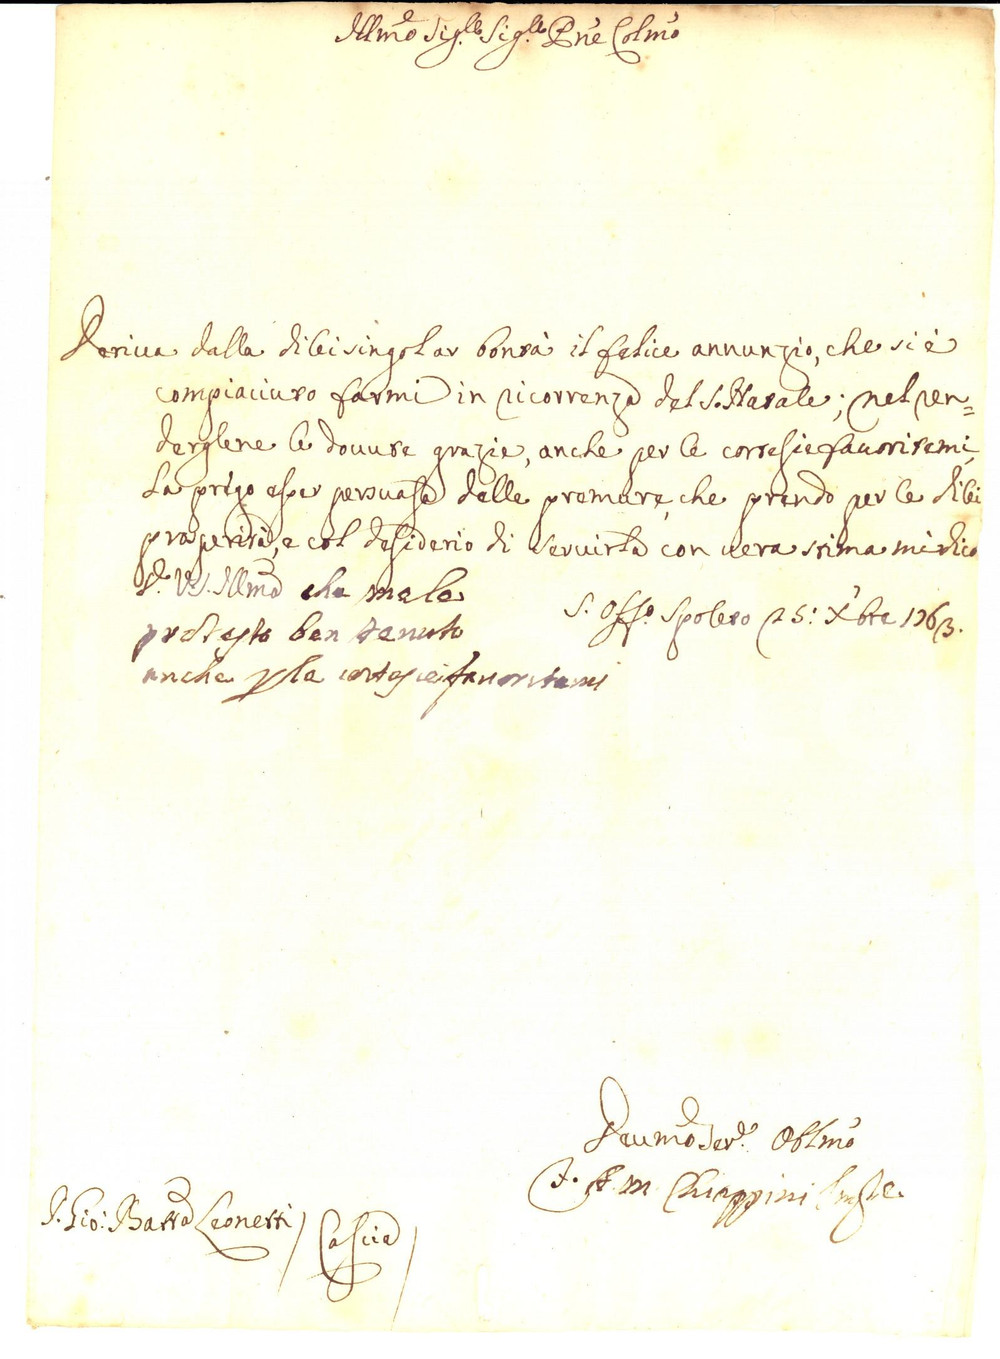 Illmo Sigre Sigre Pne Colmo
Deriva dalla di lei singolar bontà il felice annunzio, che si è
compiaciuto farmi in ricorrenza del S. Natale; nel ren=
dergliene le dovute grazie, anche per le cortesie favoritemi,
La prego esser persuasa delle premure, che prendo per le di lei
prosperità, e col desiderio di servirla con vera stima mi dico
Di V.S. Illma che me le
protesto ben tenuto
anche p la cortesie favoritami
S. Offo. Spoleto 25: Xbre 1763.
Devmo Serv. Obblmo
F. A. M. Chiappini
S. Gio: Batta Leonetti / Cascia /